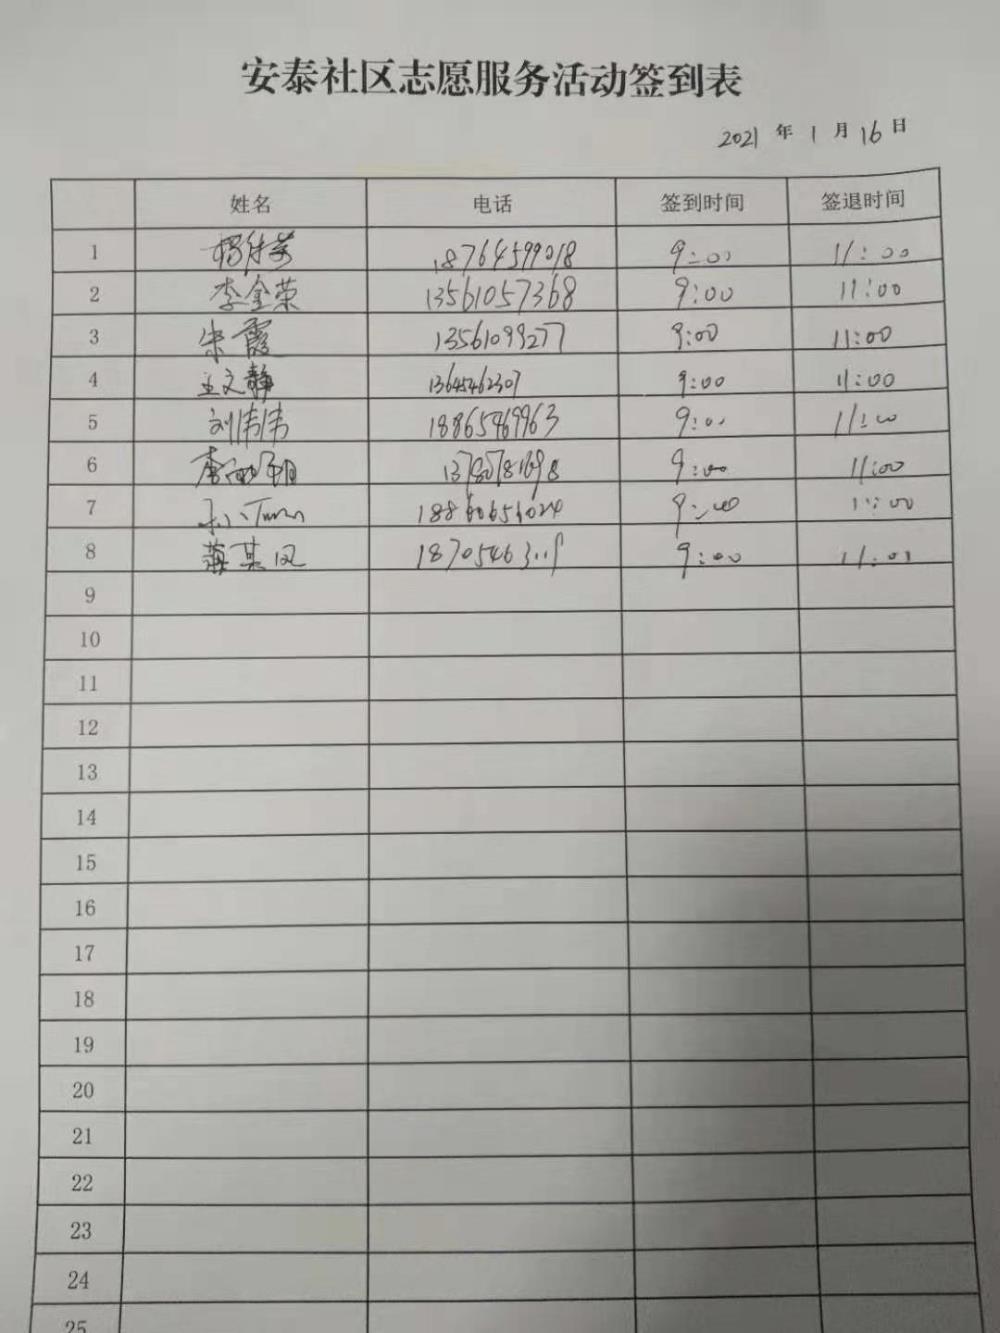 安泰社区志愿服务活动签到表
2021 年 1 月 16 日
姓名 电话 签到时间 签退时间
1 18764599018 9:00 11:00
2 李金荣 13561057368 9:00 11:00
3 宋霞 13561099277 9:00 11:00
4 王文静 13645462307 9:00 11:00
5 刘伟伟 18865469963 9:00 11:00
6 9:00 11:00
7 9:00 11:00
8 9:00 11:00
9
10
11
12
13
14
15
16
17
18
19
20
21
22
23
24
25